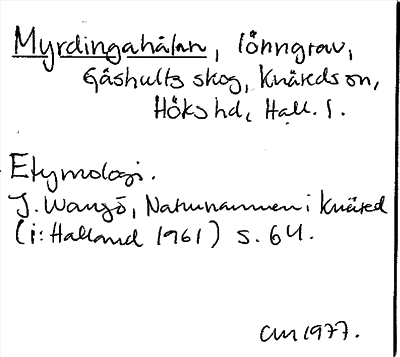 Myrdingahålan, lönngrav,
Gåshults skog, Knäreds sn,
Höks hd, Hall. l.
Etymologi.
J. Wangö, Naturnamnen i Knäred
(i: Halland 1961) s. 64.
CM 1977.